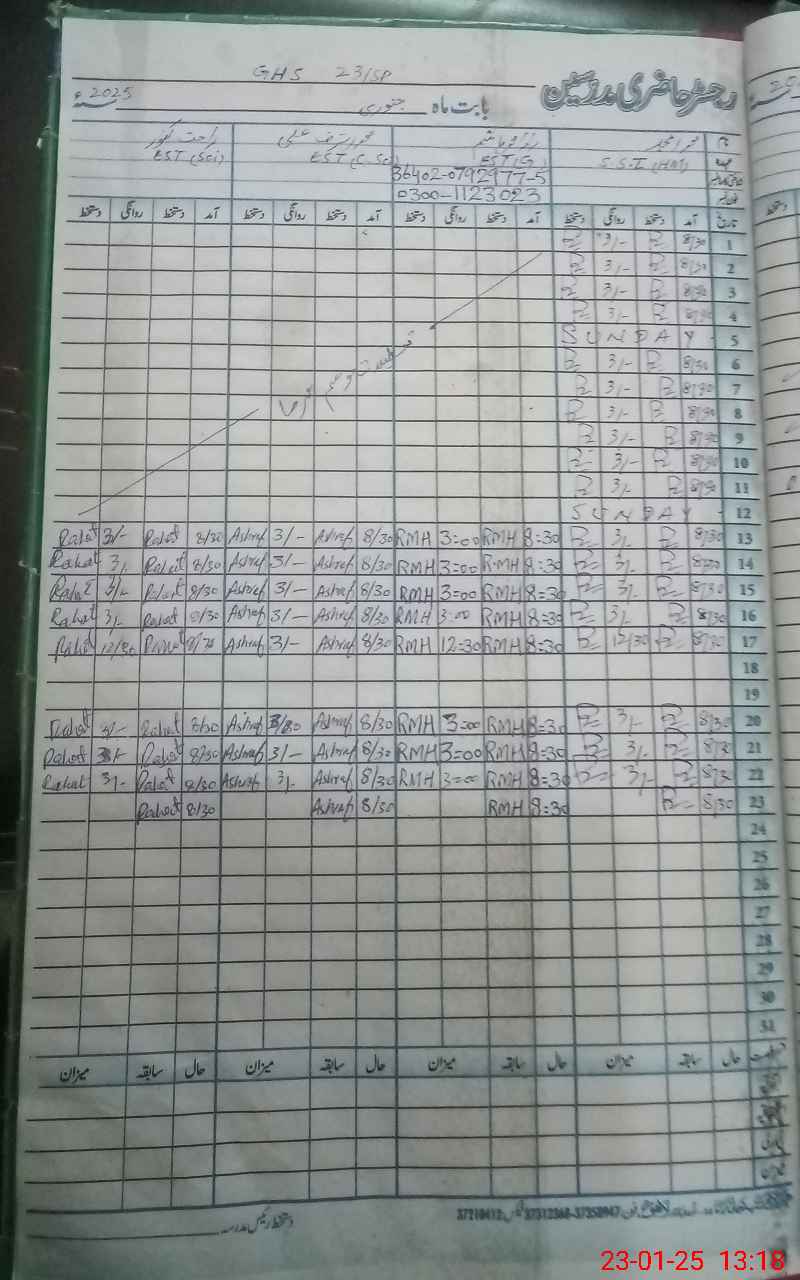 GHS 23/SP
رجسٹر حاضری مدرسین
بابت ماہ جنوری 2025ء
نام محمد امجد محمد اشرف علی
عہدہ S.S.T (HM) EST(G) EST (C.Sc) EST (Sci)
36402-0792977-5
0300-1123023
تاریخ آمد دستخط روانگی دستخط آمد دستخط روانگی دستخط آمد دستخط روانگی دستخط آمد دستخط روانگی دستخط
1 8/30 3/-
2 8/30 3/-
3 8/30 3/-
4 8/30 3/-
5 SUNDAY
6 8/30 3/-
7 8/30 3/-
8 8/30 3/-
9 8/30 3/-
10 8/30 3/-
11 8/30 3/-
12 SUNDAY
Rahat 3/- Rahat 8/30 Ashraf 3/- Ashraf 8/30 RMH 3=00 RMH 8=30 3/- 8/30 13
Rahat 3/- Rahat 8/30 Ashraf 3/- Ashraf 8/30 RMH 3=00 RMH 8=30 3/- 8/30 14
Rahat 3/- Rahat 8/30 Ashraf 3/- Ashraf 8/30 RMH 3=00 RMH 8=30 3/- 8/30 15
Rahat 3/- Rahat 8/30 Ashraf 3/- Ashraf 8/30 RMH 3=00 RMH 8=30 3/- 8/30 16
Rahat 12/30 Rahat 8/30 Ashraf 3/- Ashraf 8/30 RMH 12=30 RMH 8=30 12/30 8/30 17
18
19
Rahat 3/- Rahat 8/30 Ashraf Ashraf 8/30 RMH 3=00 RMH 8=30 3/- 8/30 20
Rahat 3/- Rahat 8/30 Ashraf 3/- Ashraf 8/30 RMH 3=00 RMH 8=30 3/- 8/30 21
Rahat 3/- Rahat 8/30 Ashraf 3/- Ashraf 8/30 RMH 3=00 RMH 8=30 3/- 8/30 22
Rahat 8/30 Ashraf 8/30 RMH 8=30 8/30 23
24
25
26
27
28
29
30
31
حال سابقہ میزان حال سابقہ میزان حال سابقہ میزان حال سابقہ میزان
دستخط رئیس مدرسہ
23-01-25 13:18